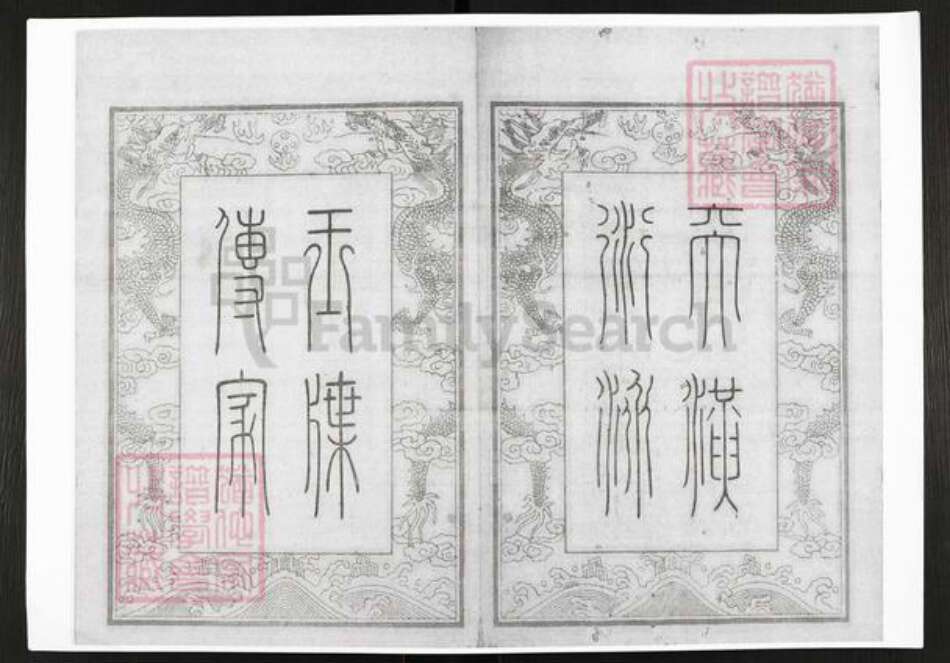 天潢
衍派
玉牒
傳家
FamilySearch